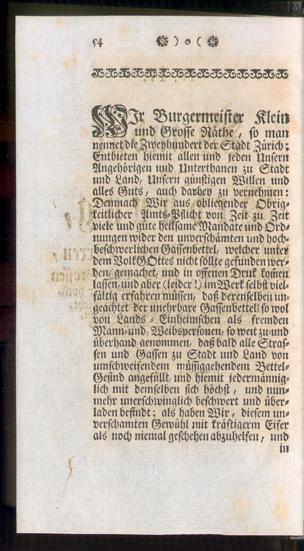 54 ❀ ) o ( ❀
Wir Burgermeister Klein
und Grosse Räthe, so man
nennet die Zweyhundert der Stadt Zürich;
Entbieten hiemit allen und jeden Unsern
Angehörigen und Unterthanen zu Stadt
und Land, Unsern günstigen Willen und
alles Guts, auch darbey zu vernehmen:
Demnach Wir aus obligender Obrig-
keitlicher Amts-Pflicht von Zeit zu Zeit
viele und gute heilsame Mandate und Ord-
nungen wider den unverschämten und hoch-
beschwerlichen Gassenbettel, welcher unter
dem Volk GOttes nicht sollte gefunden wer-
den, gemachet, und in offenen Druk kom̃en
lassen, und aber (leider!) im Werk selbst viel-
fältig erfahren müssen, daß derenselben un-
geachtet der unehrbare Gassenbettel so wol
von Lands-Einheimschen als fremden
Mann- und Weibspersonen, so weit zu- und
überhand genommen, daß bald alle Stras-
sen und Gassen zu Stadt und Land von
umschweifendem müssiggehendem Bettel-
Gesind angefüllt, und hiemit jedermännig-
lich mit demselben sich höchst, und nun-
mehr unerschwinglich beschwert und über-
laden befindt; als haben Wir, diesem un-
verschamten Gewühl mit kräftigerm Eifer
als noch niemal geschehen abzuhelfen, und
in